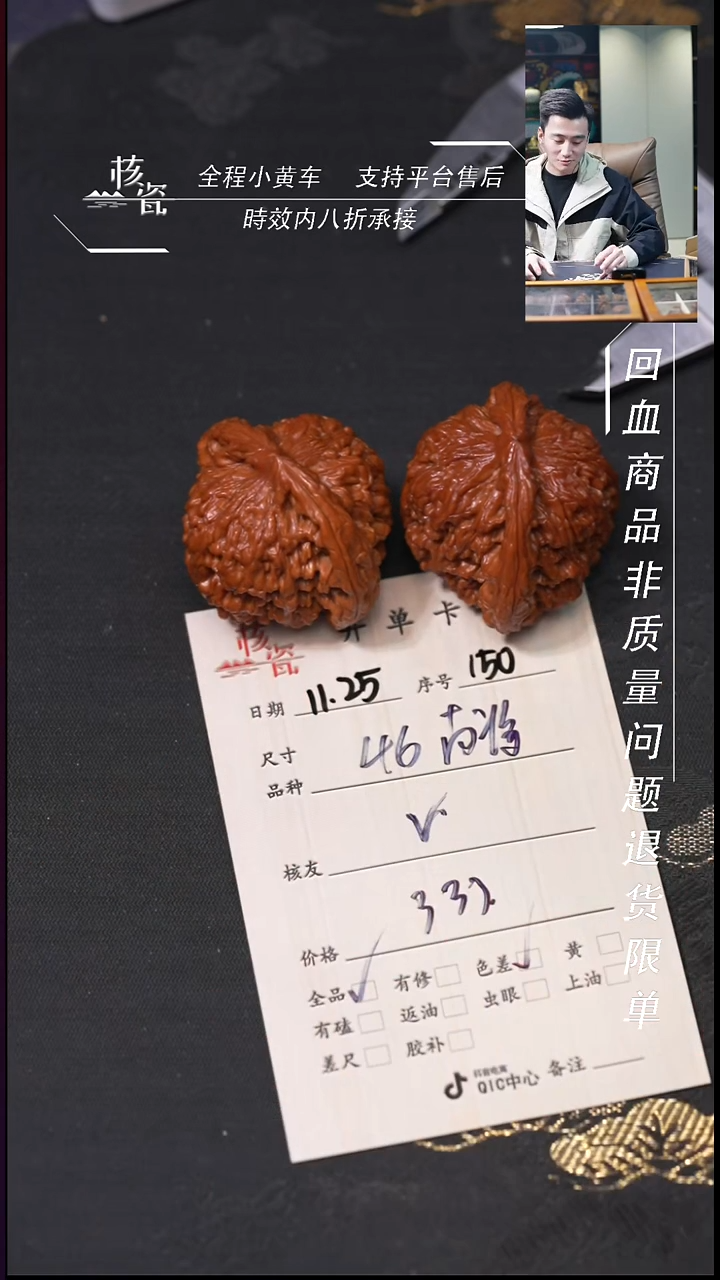 核瓷
全程小黄车 支持平台售后
時效内八折承接
回血商品非质量问题退货限单
核瓷
开单卡
日期 11.25 序号 150
尺寸
品种 46
核友
价格
全品 有修 色差 黄
有磕 返油 虫眼 上油
差尺 胶补
抖音电商
QIC中心 备注